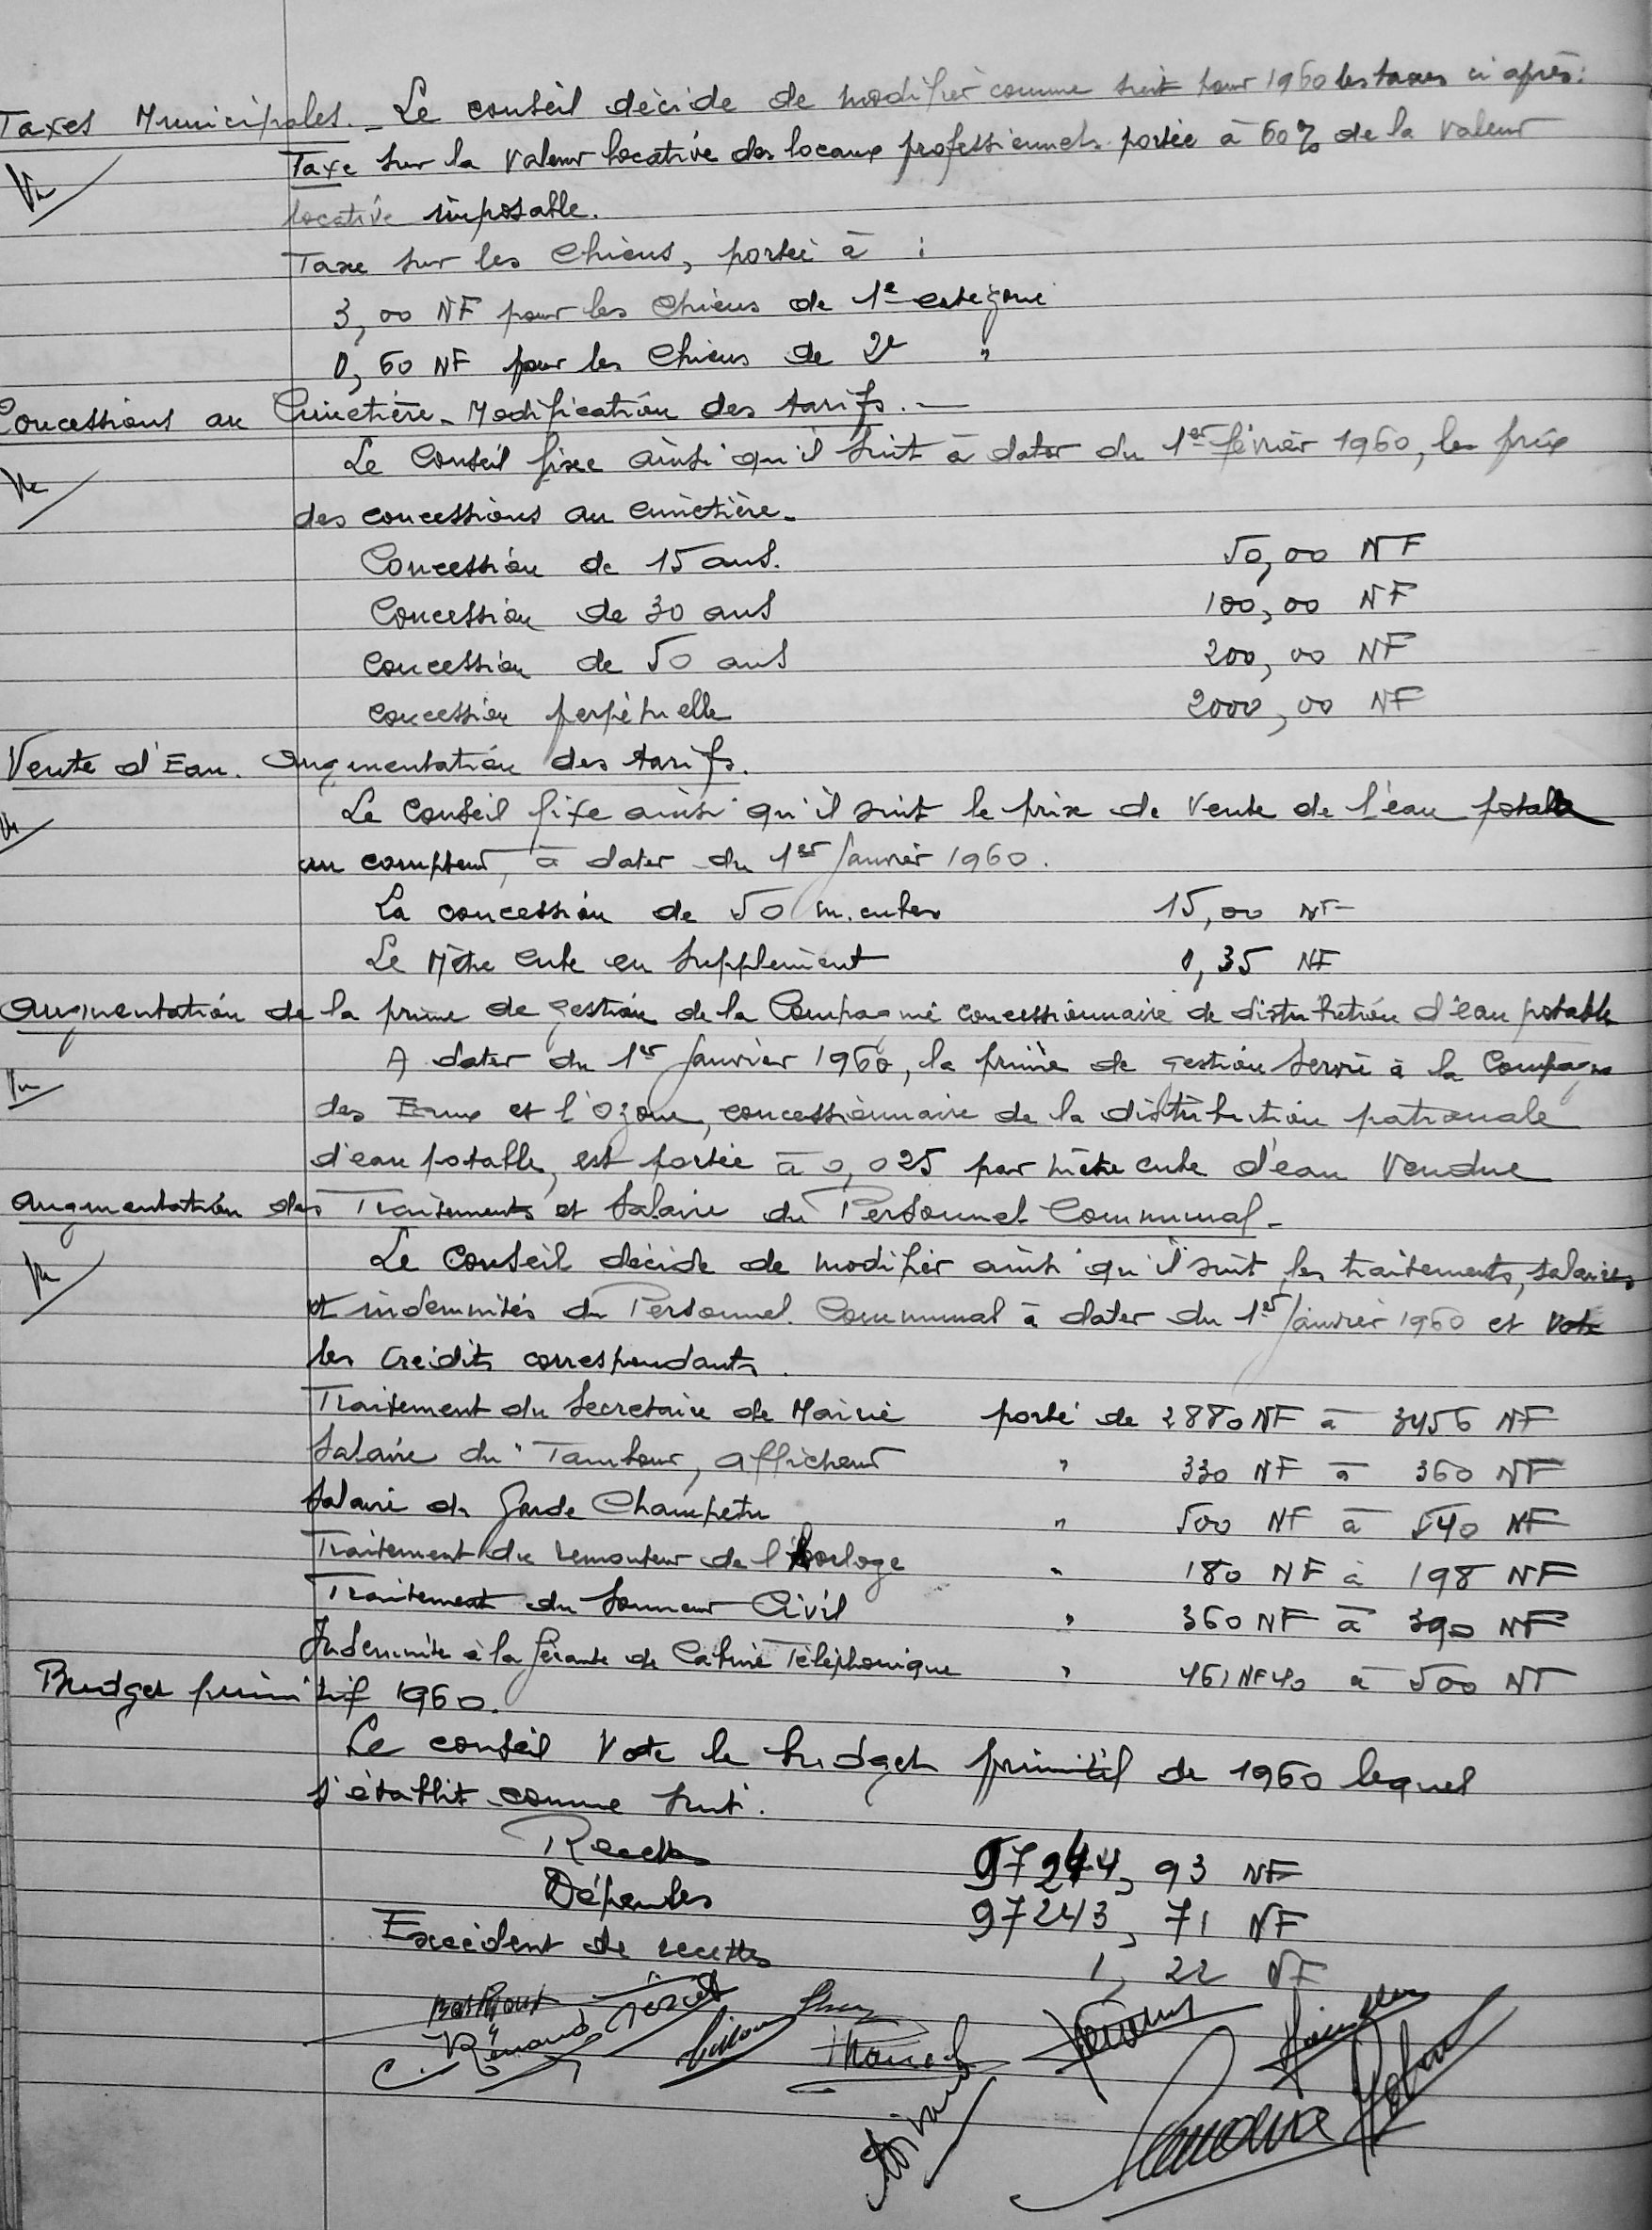 Taxes Municipales. - Le conseil décide de modifier comme suit pour 1960 les taxes ci après:
Vu
Taxe sur la valeur locative des locaux professionnels portée à 60% de la valeur
locative imposable.
Taxe sur les Chiens, portée à :
3,00 NF pour les Chiens de 1e categorie
0,60 NF pour les Chiens de 2e "
Concessions au Cimetière - Modification des tarifs. -
Vu
Le Conseil fixe ainsi qu'il suit à dater du 1er février 1960, les prix
des concessions au cimetière.
Concession de 15 ans. 50,00 NF
Concession de 30 ans 100,00 NF
Concession de 50 ans 200,00 NF
Concession perpétuelle 2000,00 NF
Vente d'Eau. Augmentation des tarifs.
Vu
Le Conseil fixe ainsi qu'il suit le prix de vente de l'eau potable
au compteur, à dater du 1er Janvier 1960.
La concession de 50 m. cubes 15,00 NF
Le Mètre Cube en supplément 0,35 NF
Augmentation de la prime de gestion de la Compagnie concessionnaire de distribution d'eau potable
Vu
A dater du 1er Janvier 1960, la prime de gestion servie à la Compagnie
des Eaux et l'Ozone, concessionnaire de la distribution patronale
d'eau potable, est portée à 0,025 par mètre cube d'eau vendue
Augmentation des Traitements et Salaire du Personnel Communal -
Vu
Le Conseil décide de modifier ainsi qu'il suit les traitements, salaires
et indemnités du Personnel Communal à dater du 1er Janvier 1960 et vote
les Crédits correspondants.
Traitement du Secretaire de Mairie porté de 2880 NF à 3456 NF
Salaire du Tambour, afficheur " 330 NF à 360 NF
Salaire du Garde Champetre " 500 NF à 540 NF
Traitement du remonteur de l'horloge " 180 NF à 198 NF
Traitement du Sonneur Civil " 360 NF à 390 NF
Indemnité à la Gérante de Cabine Téléphonique " 461 NF 40 à 500 NF
Budget primitif 1960.
Le conseil vote le budget primitif de 1960 lequel
s'établit comme suit.
Recettes 97244,93 NF
Dépenses 97243,71 NF
Excédent de recettes 1,22 NF
Rémand